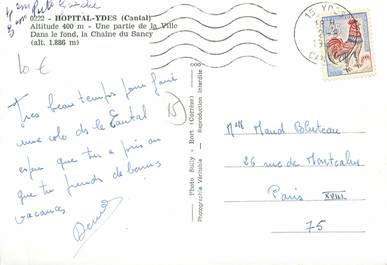 6222 - HOPITAL-YDES (Cantal)
Altitude 400 m - Une partie de la Ville
Dans le fond, la Chaîne du Sancy
(alt. 1.886 m)
10 €
15
Très beau temps pour faire
une colo ds le Cantal
espère que tu a pris ou
que tu prends de bonnes
vacances
Photo Builly - Bort (Corrèze)
Photographie Véritable - Reproduction Interdite
15 YDES
Mlle Maud
26 rue de Montcalm
Paris XVIII
75